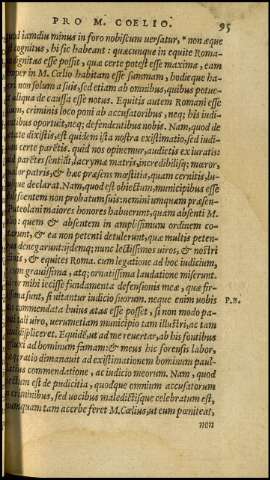 PRO M. COELIO. 95
quod iamdiu minus in foro nobiscum uersatur, * non æque
est cognitus, hi sic habeant: quæcunque in equite Roma-
dignitas esse possit, quæ certe potest esse maxima, eam
semper in M. Cœlio habitam esse summam, hodieque ha-
non solum a suis, sed etiam ab omnibus, quibus potue-
aliqua de causa esse notus. Equitis autem Romani esse
criminis loco poni ab accusatoribus, neq; his iudi-
cantibus oportuit, neq; defendentibus nobis. Nam, quod de
pietate dixistis, est quidem ista nostra existimatio, sed iudi-
certe parētis. quid nos opinemur, audietis ex iuratis:
quid parētes sentiāt, lacrymæ matris, incredibilisq; mœror,
squalor patris, & hæc præsens mœstitia, quam cernitis, lu-
ctusque declarat. Nam, quod est obiectum, municipibus esse
adolescentem non probatum suis: nemini unquam præsen-
Puteolani maiores honores habuerunt, quam absenti M.
quem & absentem in amplissimum ordinem co-
& ea non petenti detulerunt, quæ multis peten-
denegarunt: ijdemq; nunc lectissimos uiros, & nostri
ordinis, & equites Roma. cum legatione ad hoc iudicium,
cum grauissima, atq; ornatissima laudatione miserunt.
mihi iecisse fundamenta defensionis meæ, quæ fir-
sunt, si nituntur iudicio suorum. neque enim uobis P.R.
commendata huius ætas esse posset, si non modo pa-
tali uiro, uerumetiam municipio tam illustri, ac tam
displiceret. Equidē, ut ad me reuertar, ab his fontibus
ad hominum famam: & meus hic forensis labor,
ratio dimanauit ad existimationem hominum paul-
commendatione, ac iudicio meorum. Nam, quod
est de pudicitia, quodque omnium accusatorum
criminibus, sed uocibus maledictisque celebratum est,
nunquam tam acerbe feret M. Cœlius, ut eum pœniteat,
non